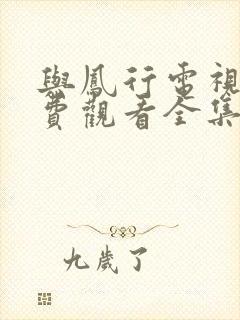 與鳳行電視
費觀看全集
九歲了